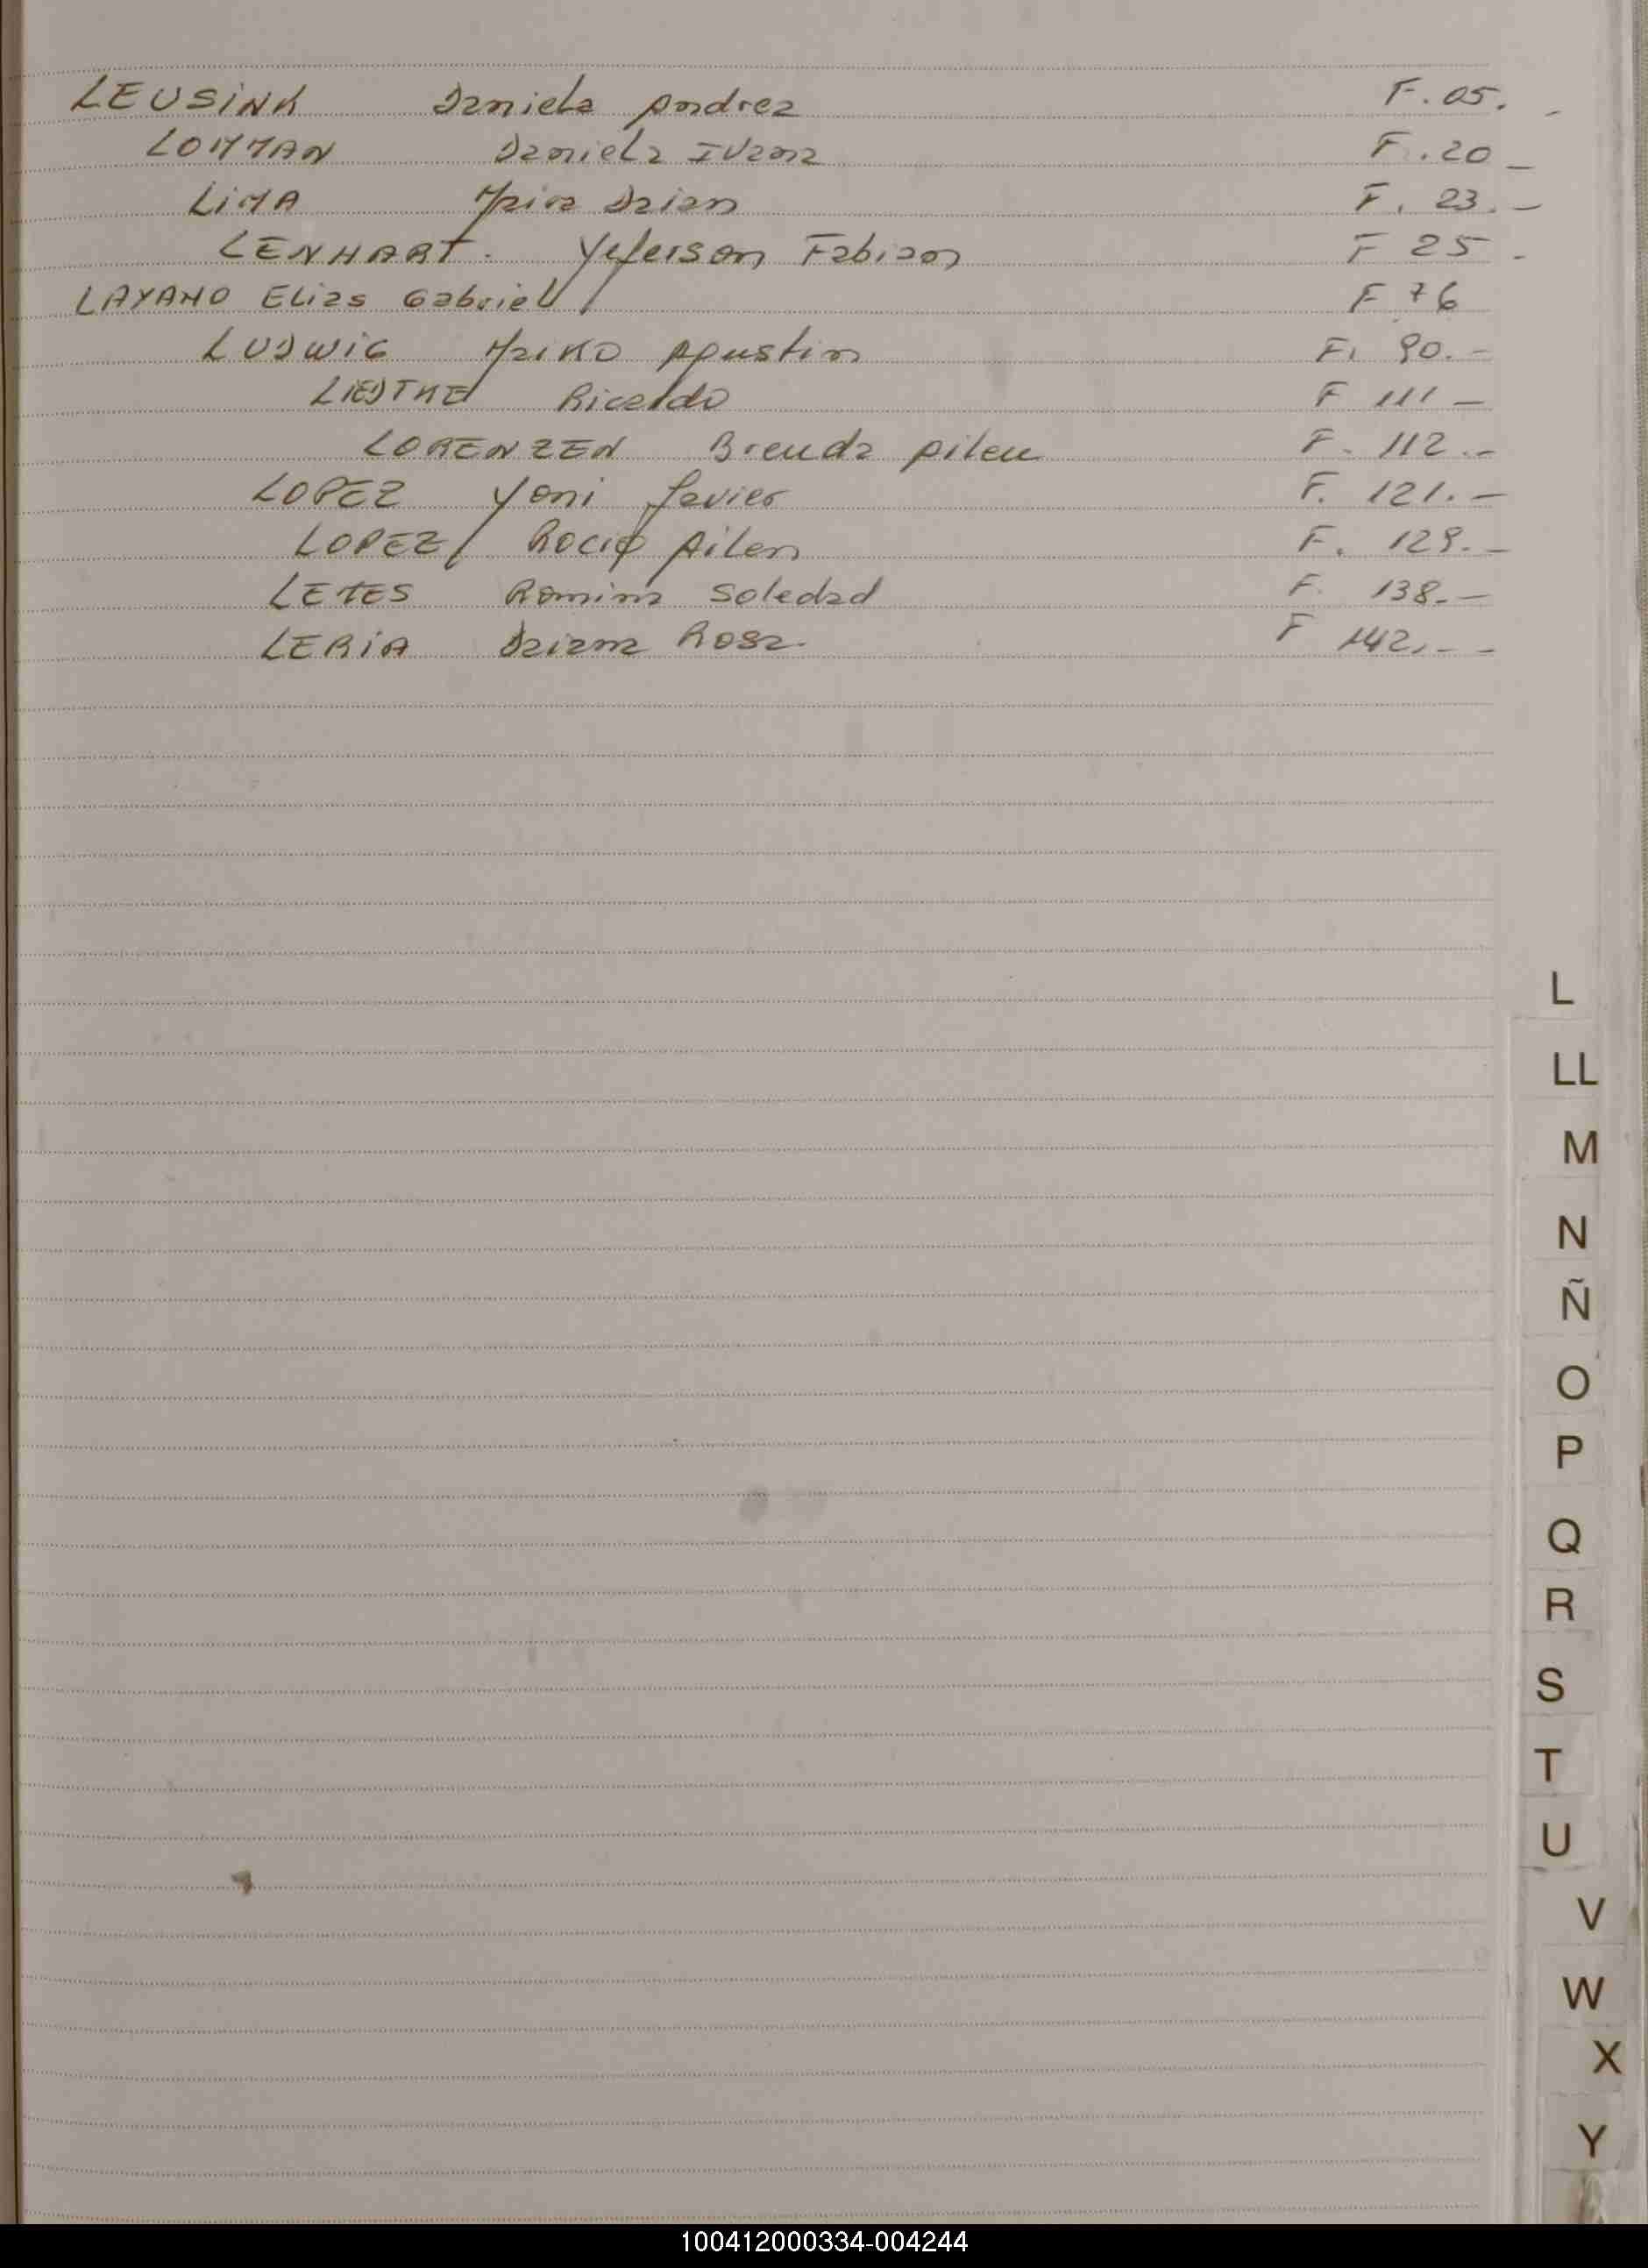 LEUSiNK Daniela Andrea F. 05. -
LOMMAN Daniela Ivana F. 20 -
LiMA Mairo Drian F. 23. -
LENHART. Yeferson Fabian F 25 -
LAYANO Elias Gabriel F 76
LUDWiG Marko Agustin F. 90. -
Ricardo F 111 -
LORENZEN Brenda Ailen F. 112. -
LOPEZ Yoni Javier F. 121. -
LOPEZ Rocio Ailen F. 129. -
LETES Romina Soledad F. 138. -
LERiA Daiana Rosa. F 142, - -
L
LL
M
N
Ñ
O
P
Q
R
S
T
U
V
W
X
Y
100412000334-004244